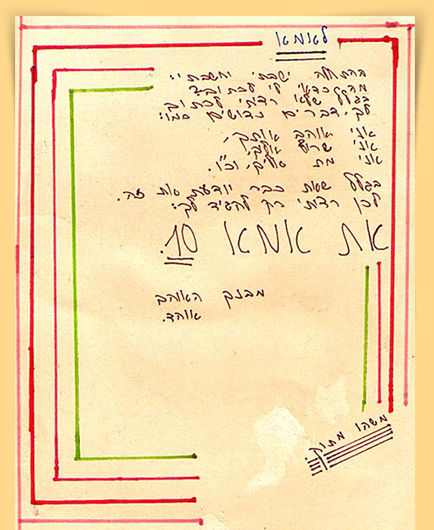 לאמא
בהתחלה ישבתי וחשבתי:
מה כדאי לי לכתוב?
בגלל שלא רציתי לכתוב
לך דברים נדושים כמו:
אני אוהב אותך,
אני שרוף עליך,
אני מת עליך, וכו'.
בגלל שאת כבר יודעת את זה.
לכן רציתי רק להגיד לך:
את אמא 10.
מבנך האוהב
אוהד.
משהו מתוק.